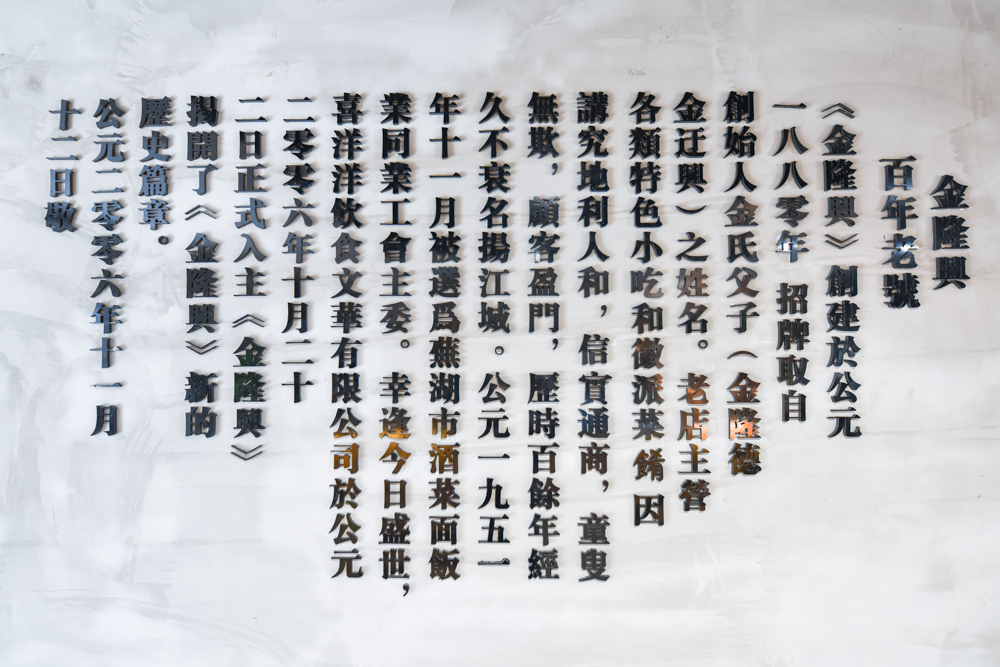 金隆興
百年老號
《金隆興》創建於公元
一八八零年 招牌取自
創始人金氏父子（金隆德
金迂興）之姓名。老店主營
各類特色小吃和徽派菜餚因
講究地利人和，信實通商，童叟
無欺，顧客盈門，歷時百餘年經
久不衰名揚江城。公元一九五一
年十一月被選爲蕪湖市酒菜面飯
業同業工會主委。幸逢今日盛世，
喜洋洋飲食文華有限公司於公元
二零零六年十月二十
二日正式入主《金隆興》
揭開了《金隆興》新的
歷史篇章。
公元二零零六年十一月
十二日敬